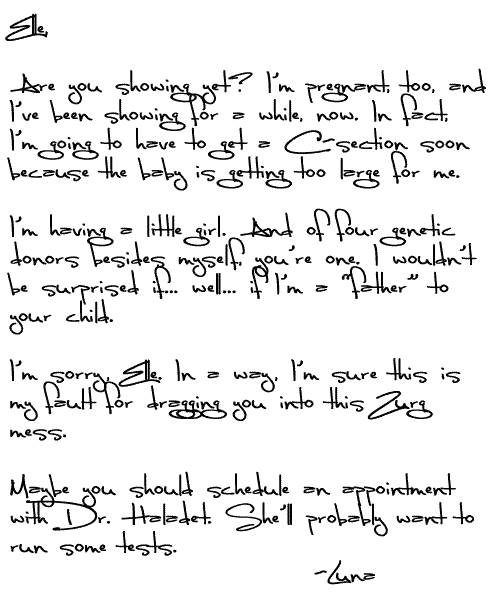 Elle,
Are you showing yet? I'm pregnant, too, and
I've been showing for a while, now. In fact,
I'm going to have to get a C-section soon
because the baby is getting too large for me.
I'm having a little girl. And of four genetic
donors besides myself, you're one. I wouldn't
be surprised if... well... if I'm a "father" to
your child.
I'm sorry, Elle. In a way, I'm sure this is
my fault for dragging you into this Zurg
mess.
Maybe you should schedule an appointment
with Dr. Haladet. She'll probably want to
run some tests.
-Luna